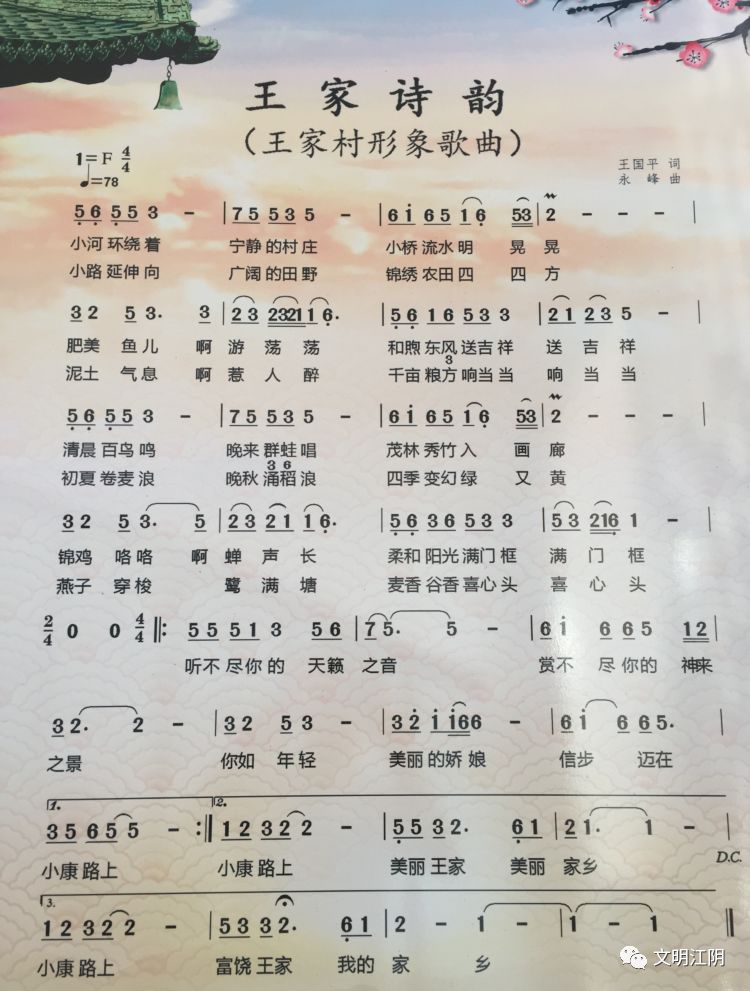 王家诗韵
(王家村形象歌曲)
1=F 4/4
♩=78
王国平 词
永峰 曲
5 6 5 5 3 - | 7 5 5 3 5 - | 6 1 6 5 1 6 5 3 | 2 - - - |
小河 环绕着 宁静的村庄 小桥流水明 晃晃
小路延伸向 广阔的田野 锦绣农田四 四方
3 2 5 3. 3 | 2 3 2 3 2 1 1 6. | 5 6 1 6 5 3 3 | 2 1 2 3 5 - |
肥美 鱼儿 啊 游荡荡 和煦东风送吉祥 送吉祥
3
泥土 气息 啊 惹人醉 千亩粮方响当当 响当当
5 6 5 5 3 - | 7 5 5 3 5 - | 6 1 6 5 1 6 5 3 | 2 - - - |
清晨百鸟鸣 晚来群蛙唱 茂林秀竹入 画廊
3 6
初夏卷麦浪 晚秋涌稻浪 四季变幻绿 又黄
3 2 5 3. 5 | 2 3 2 1 1 6. | 5 6 3 6 5 3 3 | 5 3 2 1 6 1 - |
锦鸡 咯咯 啊 蝉声长 柔和阳光满门框 满门框
燕子 穿梭 鹭满塘 麦香谷香喜心头 喜心头
2/4 0 0 4/4 ‖: 5 5 5 1 3 5 6 | 7 5. 5 - | 6 1 6 6 5 1 2 |
听不尽你的 天籁 之音 赏不尽你的 神来
3 2. 2 - | 3 2 5 3 - | 3 2 1 1 6 6 - | 6 1 6 6 5. |
之景 你如 年轻 美丽的娇娘 信步 迈在
1. 2.
3 5 6 5 5 - :‖ 1 2 3 2 2 - | 5 5 3 2. 6 1 | 2 1. 1 - |
小康路上 小康路上 美丽王家 美丽 家乡
D.C.
3.
1 2 3 2 2 - | 5 3 3 2. 6 1 | 2 - 1 - | 1 - 1 - ‖
小康路上 富饶王家 我的 家 乡
文明江阴